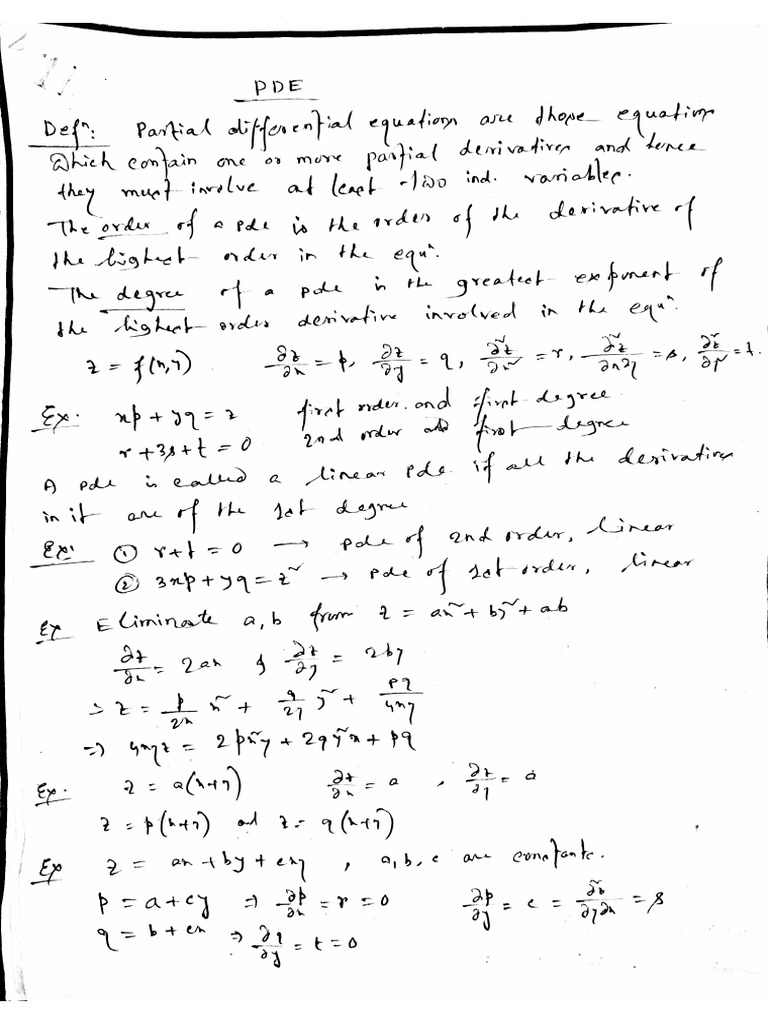 PDE
Defⁿ: Partial differential equations are those equations
which contain one or more partial derivatives and hence
they must involve at least two ind. variables.
The order of a pde is the order of the derivative of
the highest order in the equⁿ.
The degree of a pde is the greatest exponent of
the highest order derivative involved in the equⁿ.
z = f(x,y) ∂z/∂x = p, ∂z/∂y = q, ∂²z/∂x² = r, ∂²z/∂x∂y = s, ∂²z/∂y² = t.
Ex. xp + yq = z first order and first degree
r + 3s + t = 0 2nd order and first degree
A pde is called a linear pde if all the derivatives
in it are of the 1st degree
Ex: ① r + t = 0 → pde of 2nd order, linear
② 3xp + yq = z² → pde of 1st order, linear
Ex Eliminate a, b from z = ax² + by² + ab
∂z/∂x = 2ax & ∂z/∂y = 2by
⇒ z = p/2x x² + q/2y y² + pq/4xy
⇒ 4xyz = 2px²y + 2qy²x + pq
Ex. z = a(x+y) ∂z/∂x = a , ∂z/∂y = a
z = p(x+y) and z = q(x+y)
Ex z = ax + by + cxy , a, b, c are constants.
p = a + cy ⇒ ∂p/∂x = r = 0 ∂p/∂y = c = ∂²z/∂y∂x = s
q = b + cx ⇒ ∂q/∂y = t = 0